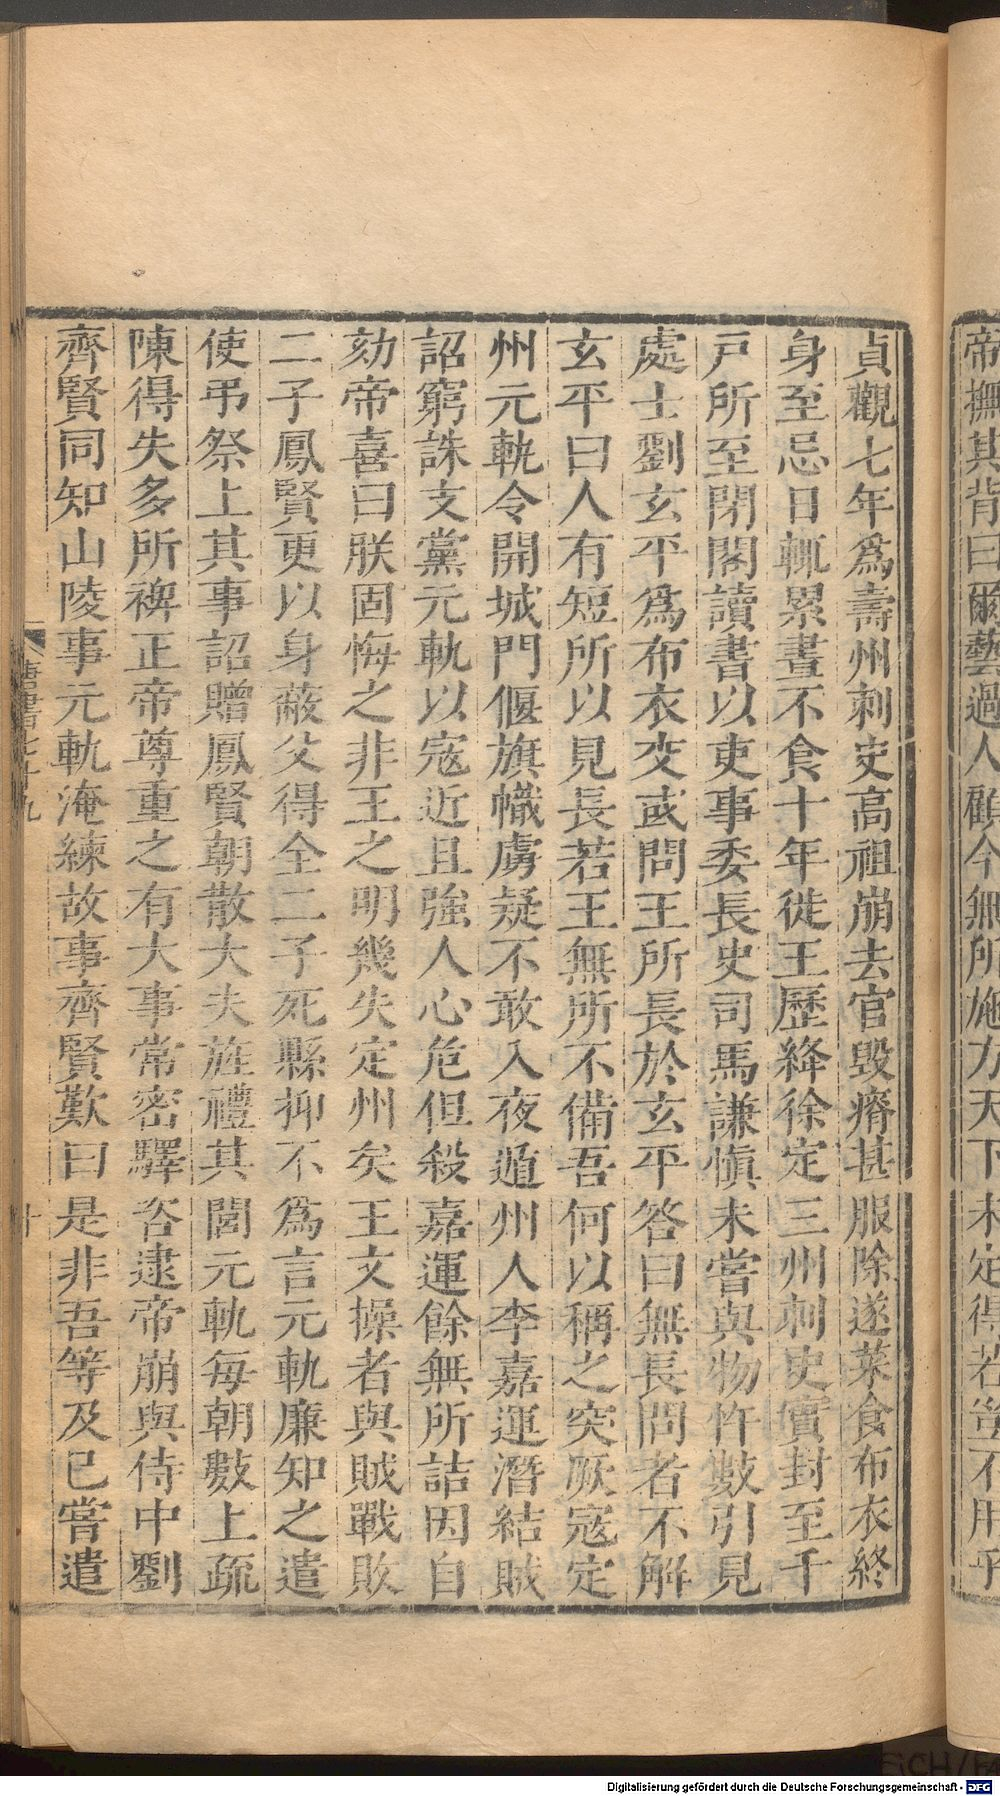 帝撫其背曰爾藝過人顧今無所施方天下未定得若豈不用乎
貞觀七年爲壽州刺史高祖崩去官毀瘠甚服除遂菜食布衣終
身至忌日輒累晝不食十年徙王歷絳徐定三州刺史實封至千
戸所至閉閤讀書以吏事委長史司馬謙愼未嘗與物忤數引見
處士劉玄平爲布衣交或問王所長於玄平答曰無長問者不解
玄平曰人有短所以見長若王無所不備吾何以稱之突厥寇定
州元軌令開城門偃旗幟虜疑不敢入夜遁州人李嘉運潛結賊
詔窮誅支黨元軌以寇近且強人心危但殺嘉運餘無所詰因自
劾帝喜曰朕固悔之非王之明幾失定州矣王文操者與賊戰敗
二子鳳賢更以身蔽父得全二子死縣抑不爲言元軌廉知之遣
使弔祭上其事詔贈鳳賢朝散大夫旌禮其閭元軌每朝數上疏
陳得失多所裨正帝尊重之有大事常密驛咨逮帝崩與侍中劉
齊賢同知山陵事元軌淹練故事齊賢歎曰是非吾等及已嘗遣
唐書七十九
十
Digitalisierung gefördert durch die Deutsche Forschungsgemeinschaft - DFG